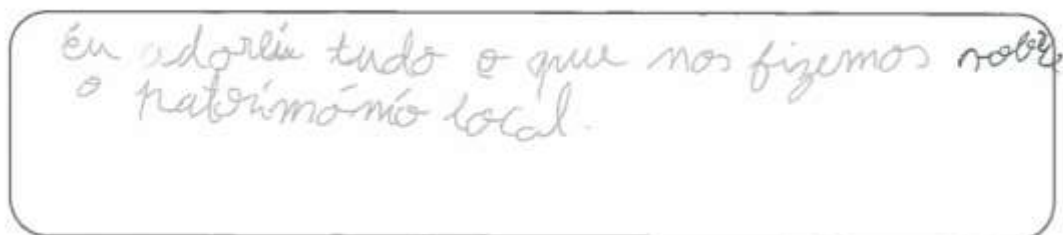 Eu adorei tudo o que nos fizemos sobre
o património local.